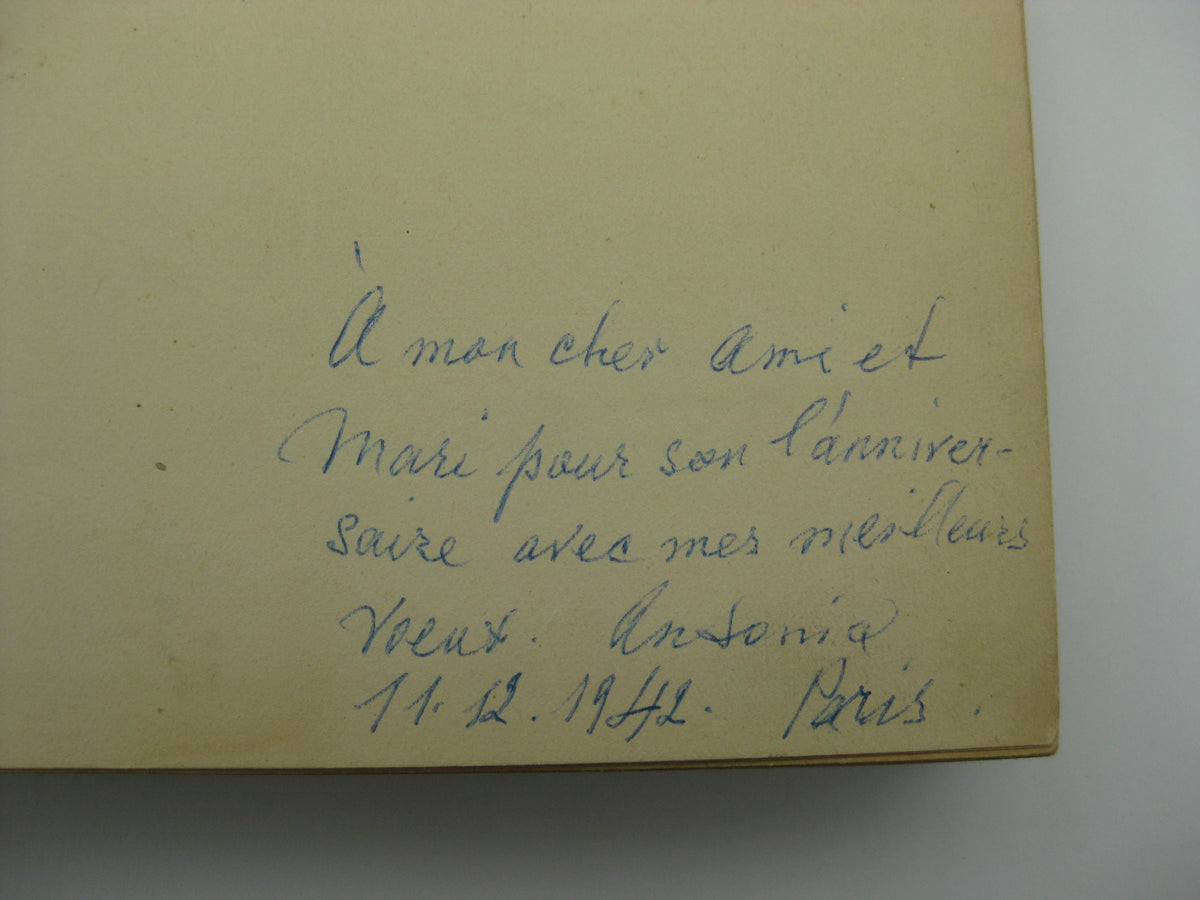 À mon cher ami et
Mari pour son l'anniver-
saire avec mes meilleurs
Voeux. Antonia
11.12.1942. Paris.